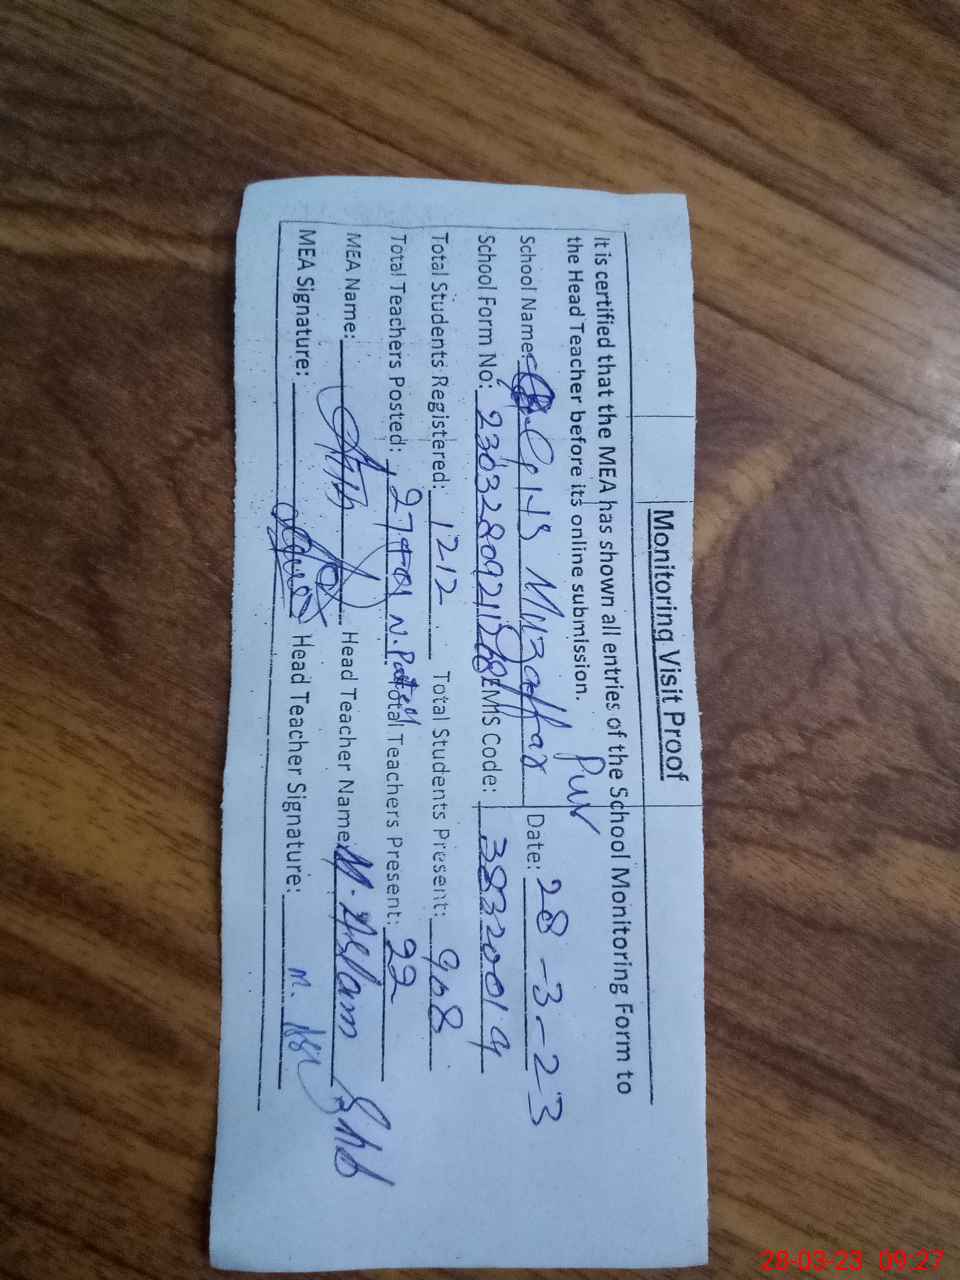 Monitoring Visit Proof
It is certified that the MEA has shown all entries of the School Monitoring Form to
the Head Teacher before its online submission.
School Name: GHS Muzaffar Pur Date: 28-3-23
School Form No: EMIS Code: 38320019
Total Students Registered: 1212 Total Students Present: 908
Total Teachers Posted: 27+01 N. Total Teachers Present: 22
MEA Name: Head Teacher Name: M. Aslam
MEA Signature: Head Teacher Signature: M.
28-03-23 09:27